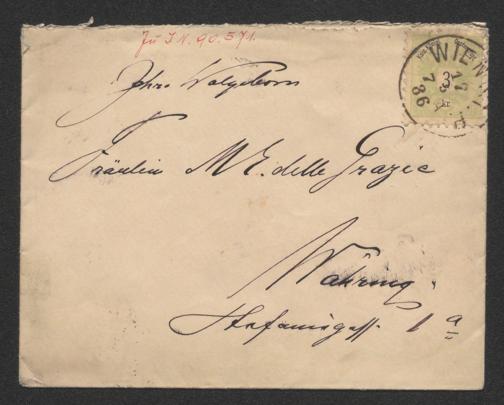 Zu I.N. 90.571.
WIEN
3
17
7
86
Ihr. Wolgeborn
Fräulein M. E. delle Grazie
Währing.
Stefaniegasse 1 a